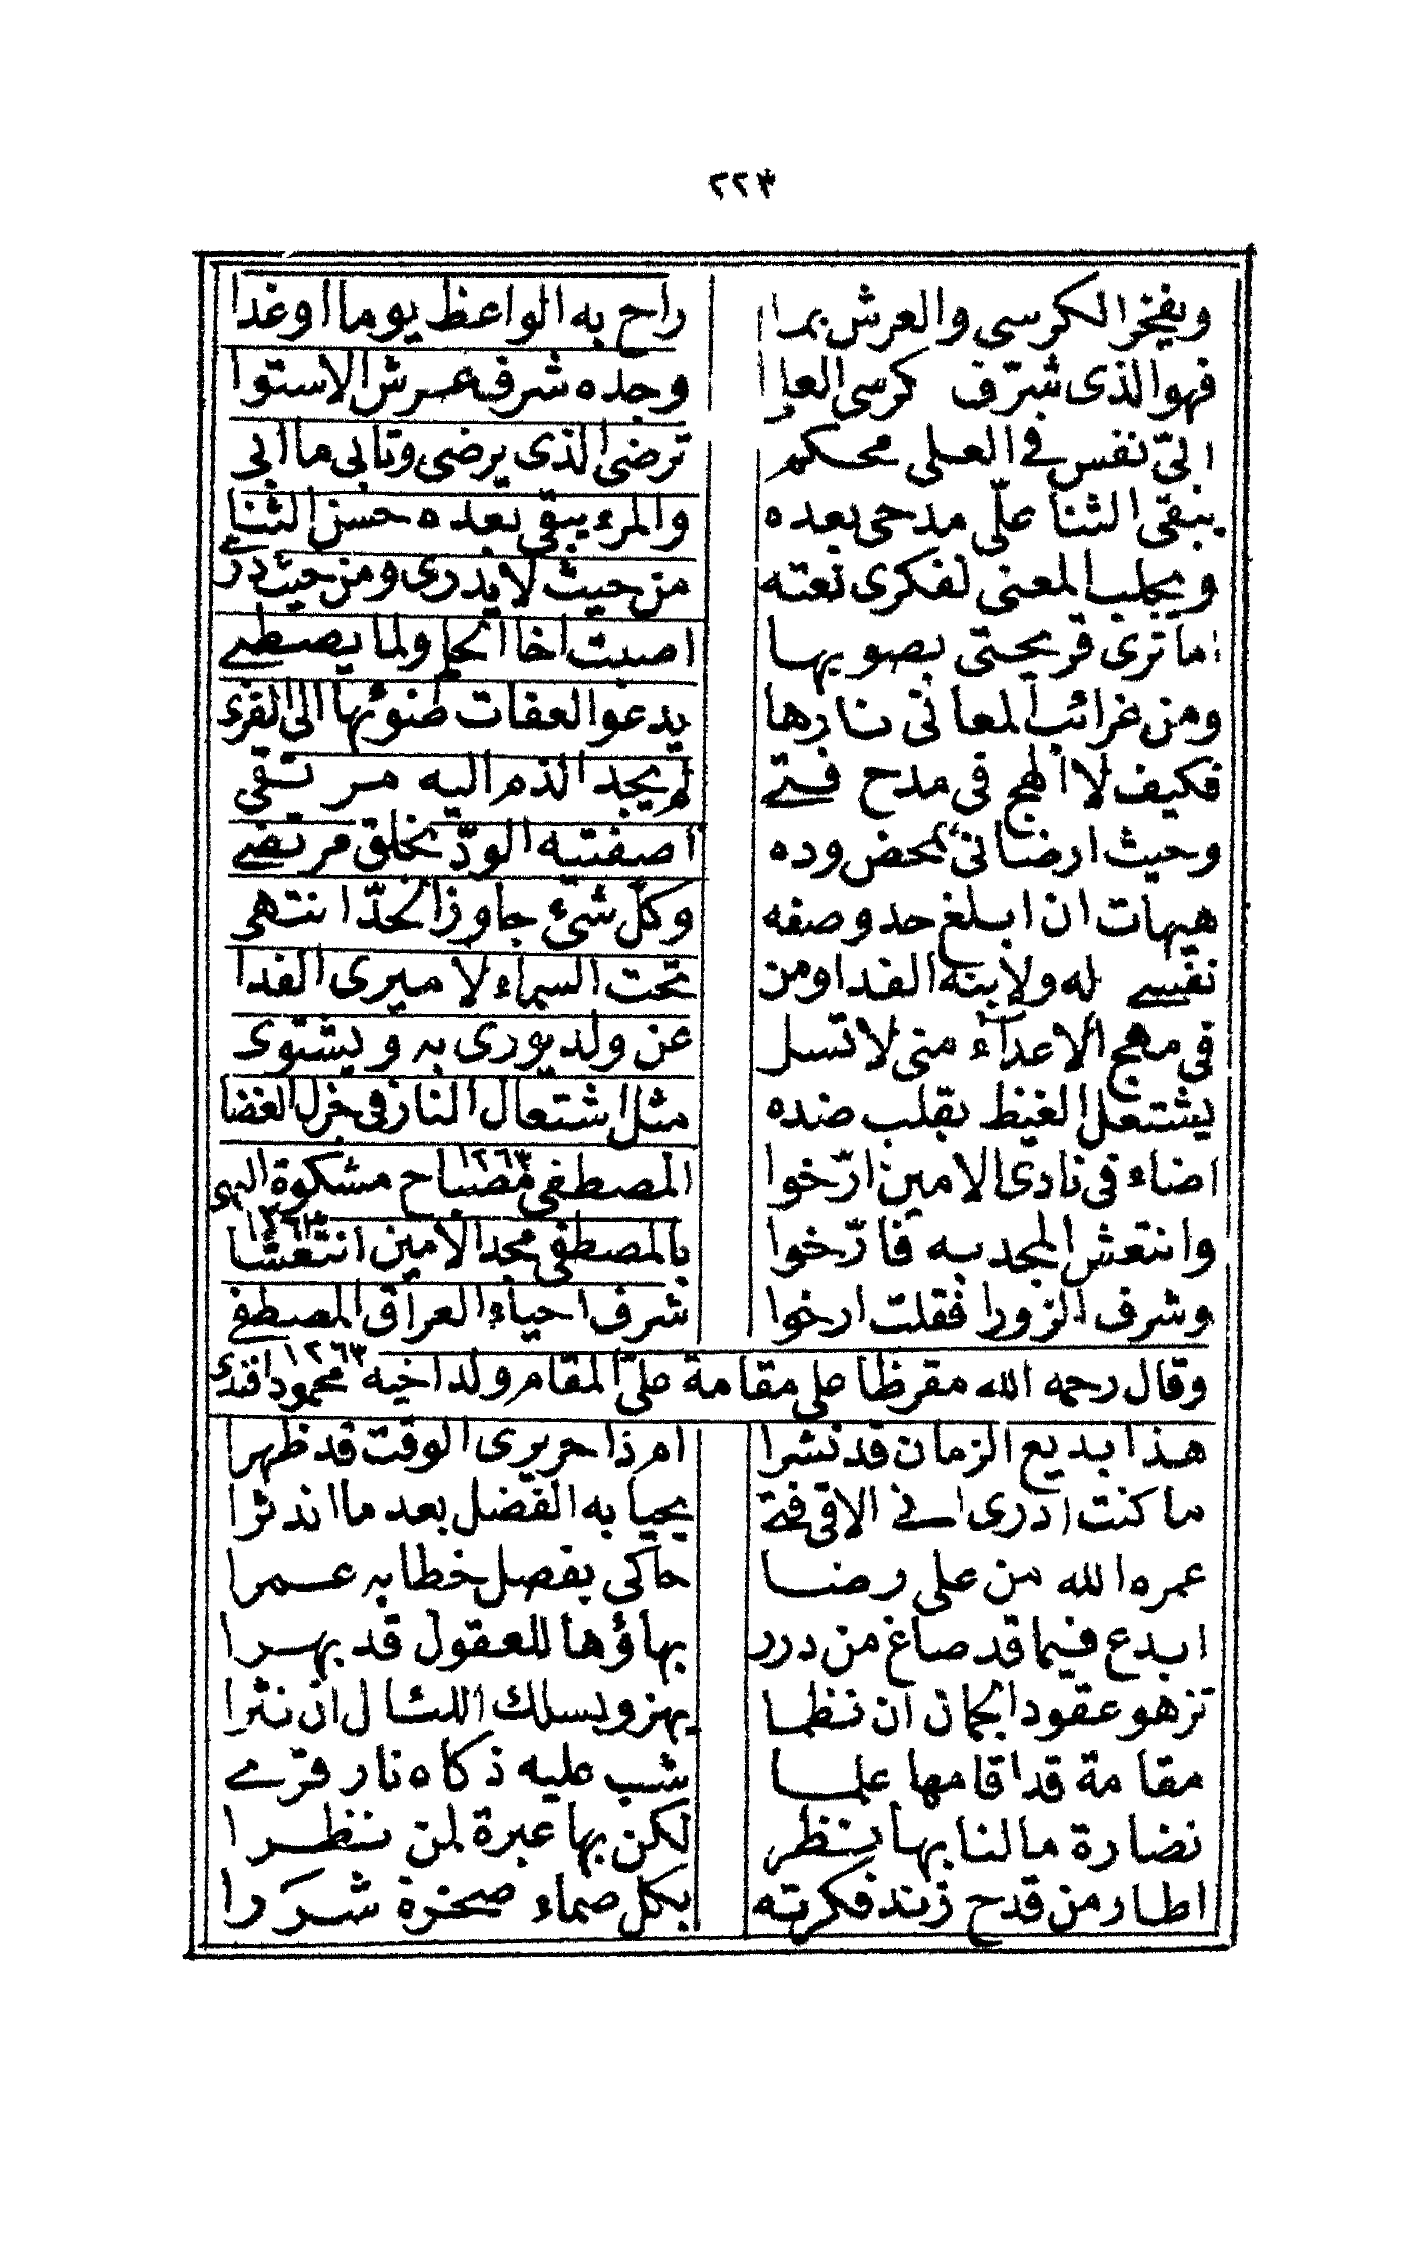 ٢٢٣
ويفخر الكرسي والعرش بما راح به الواعظ يوما اوغدا
فهو الذى شرّف كرسي العلا وجده شرف عرش الاستوا
الىّ نفس فى العلى محكم ترضى الذى يرضى وتابى ما ابى
يبقى الثنا علّى مدحى بعده والمرء يبقى بعده حسن الثنا
ويجلب المعنى لفكرى نعته من حيث لا يدرى ومن حيث درى
اما ترى قريحتى بصوبها اصبت اخا الحلم ولما يصطلى
ومن غرائب المعانى نارها يدعو العفات ضوئها الى القرى
فكيف لا الهج فى مدح فتى لم يجد الذم اليه مرتقى
وحيث ارضانى بمحض وده اصفتيه الودّ بخلق مرتضى
هيهات ان ابلغ حد وصفه وكلّ شئ جاوز الحدّ انتهى
نفسى له ولابنه الفدا ومن تحت السماء لا ميرى الفدا
فى مهج الاعداء منى لا تسل عن ولد يورى به ويشتوى
يشتعل الغيظ بقلب ضده مثل اشتعال النار فى جزل الغضا
اضاء فى نادى الامين ارّخوا المصطفى مصباح مشكوة البهى ١٢٦٣
وانتعش المجد به فارّخوا بالمصطفى مجد الامين انتعشا ١٢٦٣
وشرف الزورا فقلت ارخوا شرف احياء العراق المصطفى ١٢٦٣
وقال رحمه الله مقرظا على مقامة علىّ المقام ولد اخيه محمود افندى
هذا بديع الزمان قد نشرا ام ذا حريرى الوقت قد ظهرا
ما كنت ادرى اسنى الاقى فتى يحيا به الفضل بعد ما اندثرا
عمره الله من على رضا حاكى بفصل خطابه عمرا
ابدع فيما قد صاغ من درر بهاؤها للعقول قد بهرا
تزهو عقود الجمان ان نظما يهز ولسلك اللئال ان نثرا
مقامة قد اقامها علما شب عليه ذكاه نار قرى
نضارة ما لنا بها بنظر لكن بها عبرة لمن نظرا
اطار من قدح زند فكرته بكل صماء صخرة شررا